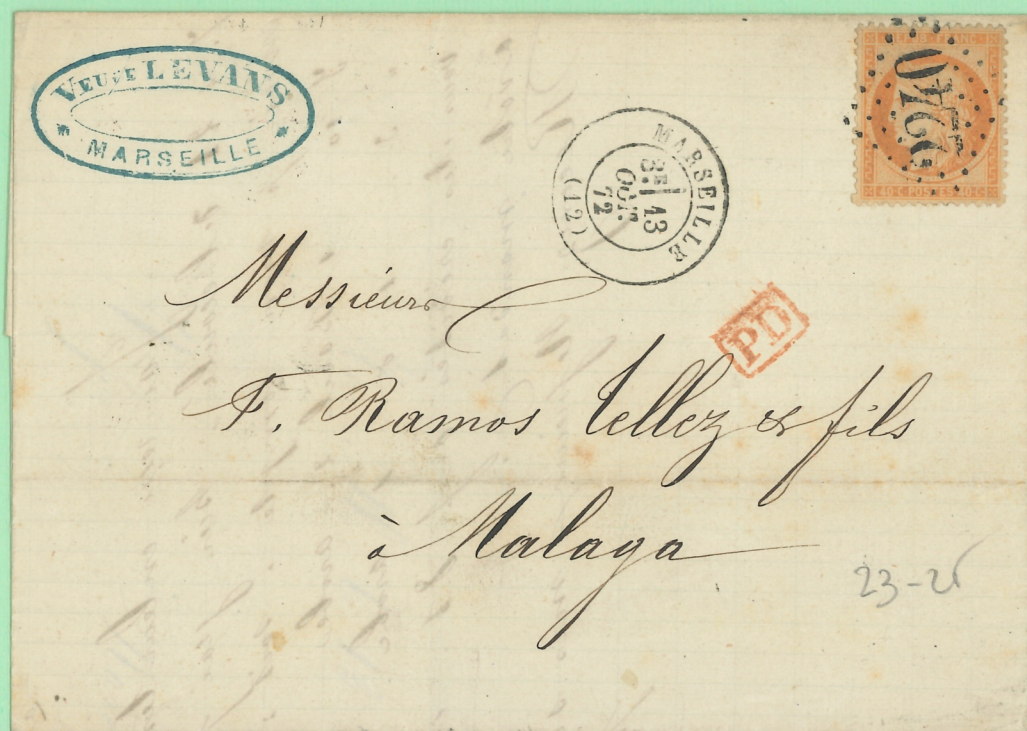 VEUVE LEVANS
MARSEILLE
MARSEILLE
3E 13
OCT.
72
(12)
2240
40 C POSTES 40 C
PD
Messieurs
F. Ramos Tellez & fils
à Malaga